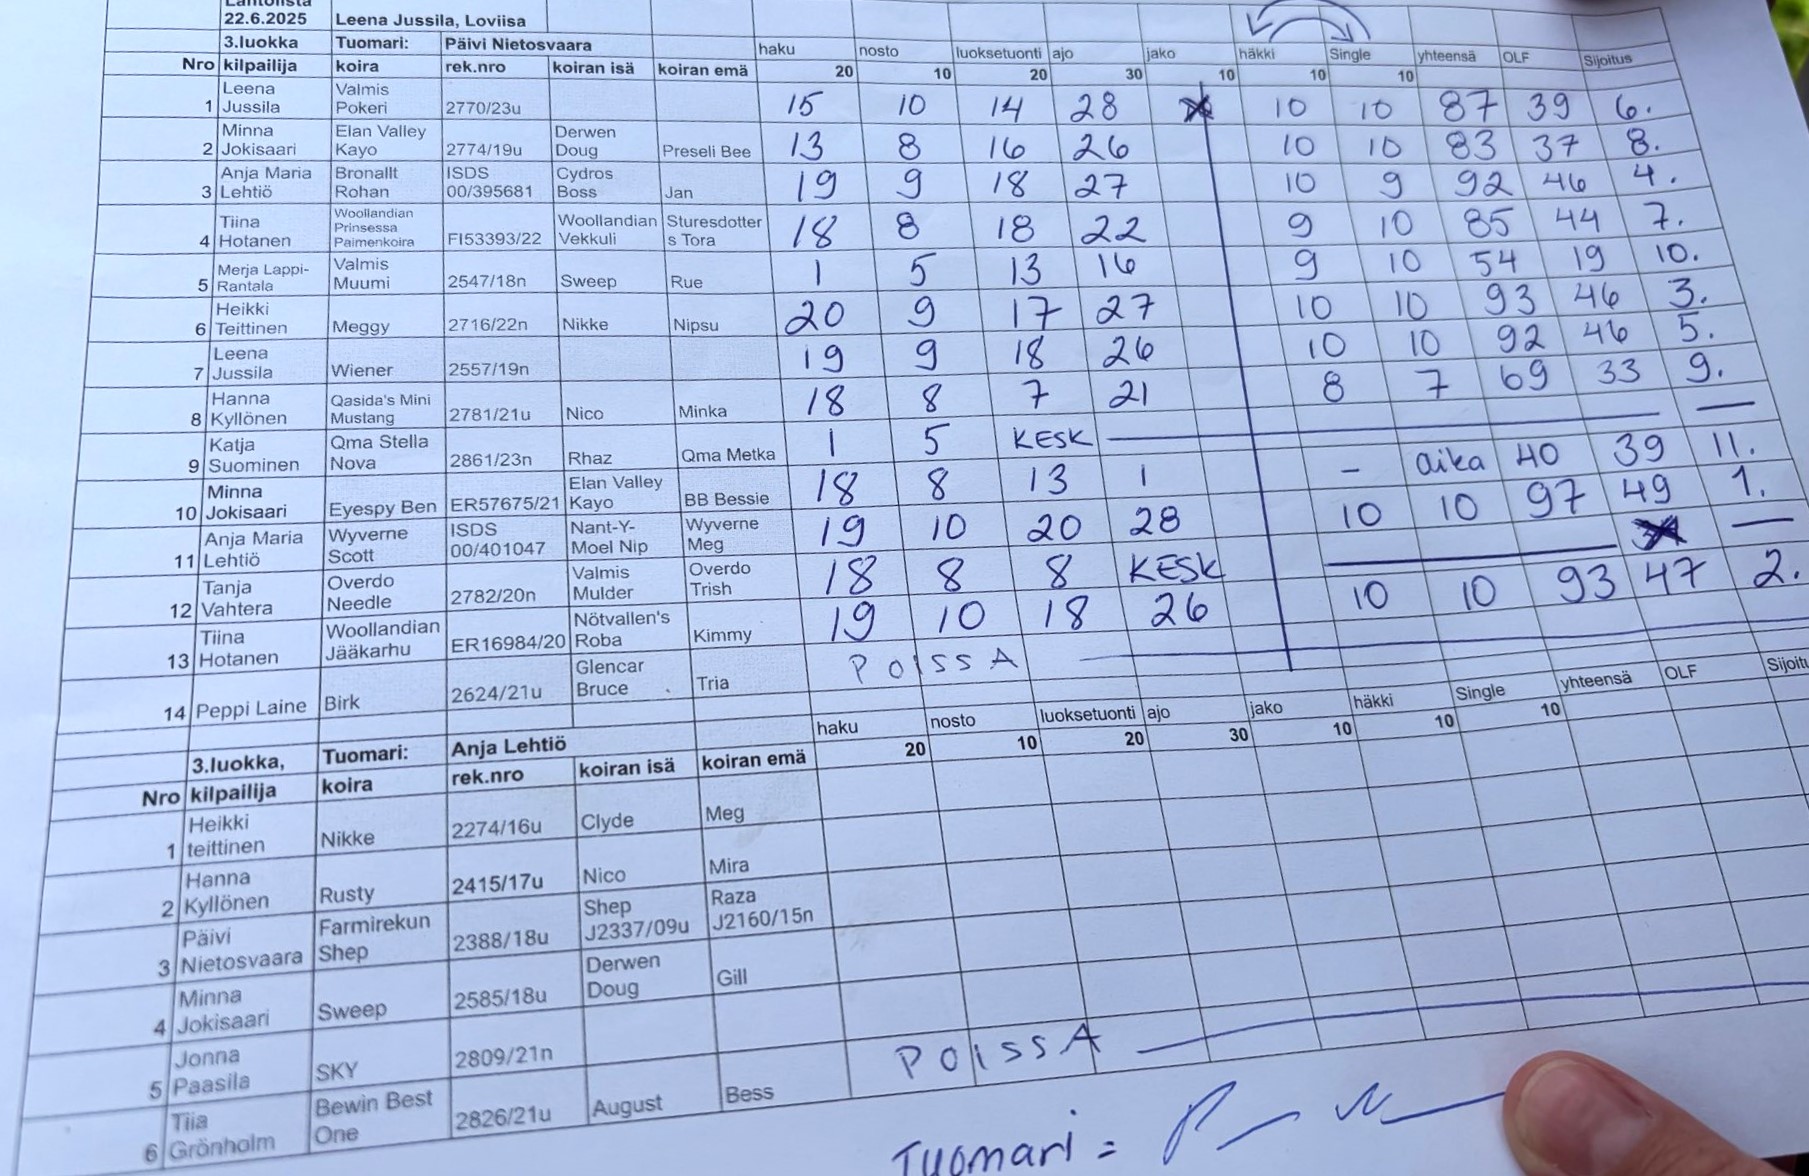 22.6.2025 Leena Jussila, Loviisa
3.luokka Tuomari: Päivi Nietosvaara haku nosto luoksetuonti ajo jako häkki Single yhteensä OLF Sijoitus
Nro kilpailija koira rek.nro koiran isä koiran emä 20 10 20 30 10 10 10
1 Leena Jussila Valmis Pokeri 2770/23u 15 10 14 28 10 10 87 39 6.
2 Minna Jokisaari Elan Valley Kayo 2774/19u Derwen Doug Preseli Bee 13 8 16 26 10 10 83 37 8.
3 Anja Maria Lehtiö Bronallt Rohan ISDS 00/395681 Cydros Boss Jan 19 9 18 27 10 9 92 46 4.
4 Tiina Hotanen Woollandian Prinsessa Paimenkoira FI53393/22 Woollandian Vekkuli Sturesdotter s Tora 18 8 18 22 9 10 85 44 7.
5 Merja Lappi-Rantala Valmis Muumi 2547/18n Sweep Rue 1 5 13 16 9 10 54 19 10.
6 Heikki Teittinen Meggy 2716/22n Nikke Nipsu 20 9 17 27 10 10 93 46 3.
7 Leena Jussila Wiener 2557/19n 19 9 18 26 10 10 92 46 5.
8 Hanna Kyllönen Qasida's Mini Mustang 2781/21u Nico Minka 18 8 7 21 8 7 69 33 9.
9 Katja Suominen Qma Stella Nova 2861/23n Rhaz Qma Metka 1 5 KESK — —
10 Minna Jokisaari Eyespy Ben ER57675/21 Elan Valley Kayo BB Bessie 18 8 13 1 - aika 40 39 11.
11 Anja Maria Lehtiö Wyverne Scott ISDS 00/401047 Nant-Y-Moel Nip Wyverne Meg 19 10 20 28 10 10 97 49 1.
12 Tanja Vahtera Overdo Needle 2782/20n Valmis Mulder Overdo Trish 18 8 8 KESK — —
13 Tiina Hotanen Woollandian Jääkarhu ER16984/20 Nötvallen's Roba Kimmy 19 10 18 26 10 10 93 47 2.
14 Peppi Laine Birk 2624/21u Glencar Bruce Tria POISSA
3.luokka, Tuomari: Anja Lehtiö haku nosto luoksetuonti ajo jako häkki Single yhteensä OLF Sijoitu
Nro kilpailija koira rek.nro koiran isä koiran emä 20 10 20 30 10 10 10
1 Heikki teittinen Nikke 2274/16u Clyde Meg
2 Hanna Kyllönen Rusty 2415/17u Nico Mira
3 Päivi Nietosvaara Farmirekun Shep 2388/18u Shep J2337/09u Raza J2160/15n
4 Minna Jokisaari Sweep 2585/18u Derwen Doug Gill
5 Jonna Paasila SKY 2809/21n POISSA
6 Tiia Grönholm Bewin Best One 2826/21u August Bess
Tuomari =